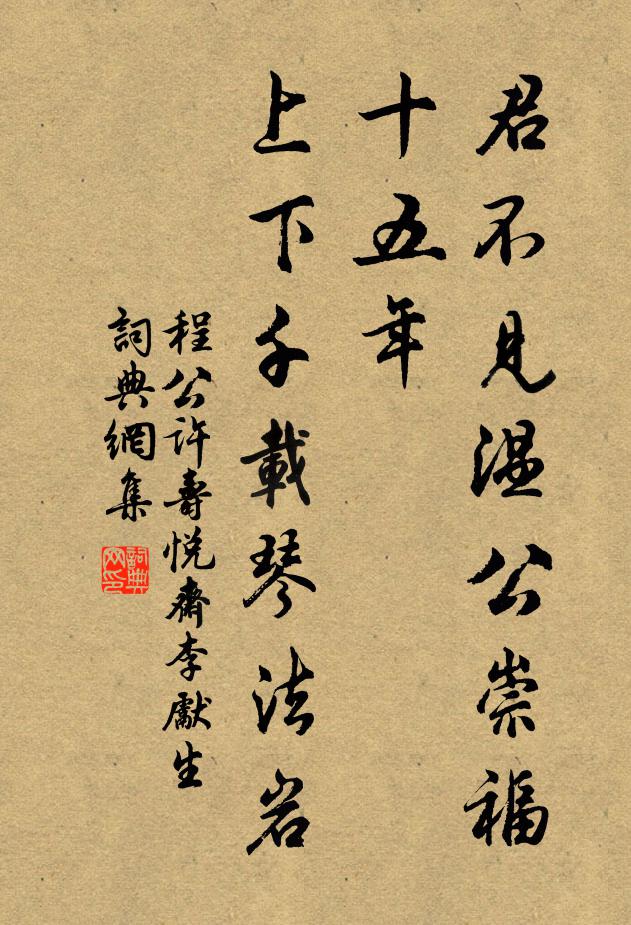 君不見溫公崇福
十五年
上下千載琴法岩
程公許壽悅齋李獻生
詞典網集
詞典网印